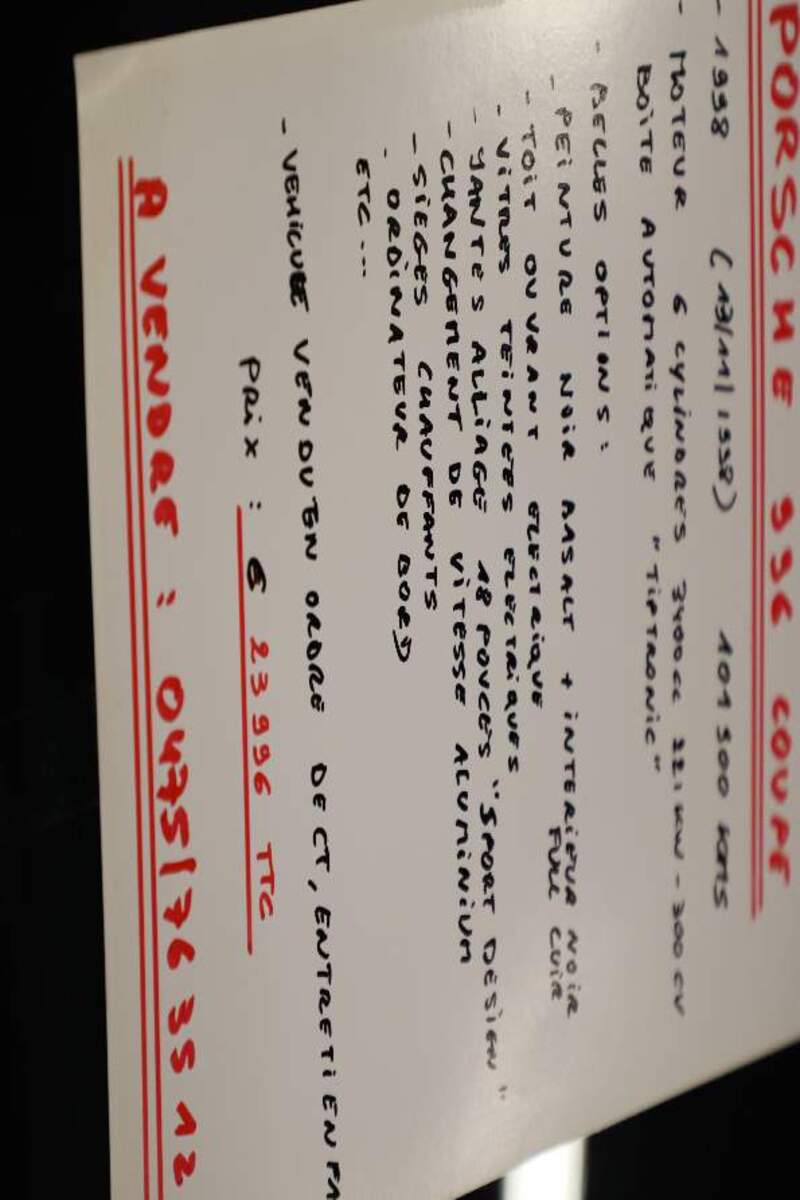 PORSCHE 996 COUPE
- 1998 (13/11/1998) 101 900 KMS
- MOTEUR 6 CYLINDRES 3400cc 221 KW - 300 CV
BOÎTE AUTOMATIQUE "TIPTRONIC"
- BELLES OPTIONS :
- PEINTURE NOIR BASALT + INTERIEUR NOIR FULL CUIR
- TOIT OUVRANT ELECTRIQUE
- VITRES TEINTEES ELECTRIQUES
- JANTES ALLIAGE 18 POUCES "SPORT DESIGN"
- CHANGEMENT DE VITESSE ALUMINIUM
- SIEGES CHAUFFANTS
- ORDINATEUR DE BORD
ETC...
- VEHICULE VENDU EN ORDRE DE CT, ENTRETIEN
PRIX : € 23996 TTC
A VENDRE : 0475/76 35 12